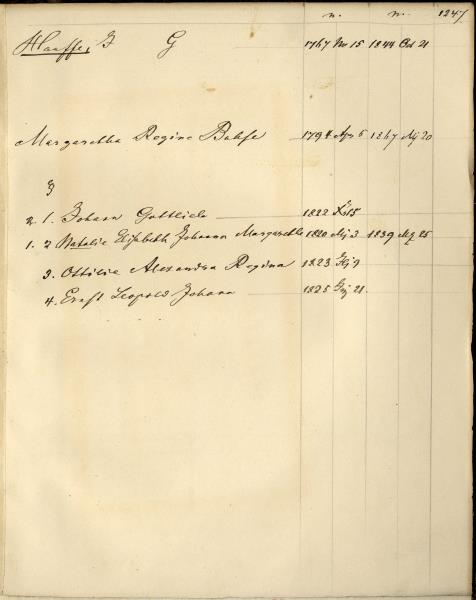 n. n. 1247
Hauffe, J G 1767 Nv 15 1844 Oct 21
Margaretha Regine Bohse 1794 Apr 5 1867 Mj 20
J
2. 1. Johann Gottlieb 1822 15
1. 2 Natalie Elisabeth Johanna Margaretha 1820 Mj 3 1839 Mz 25
3. Ottilie Alexandra Regina 1823
4. Ernst Leopold Johann 1825 21.